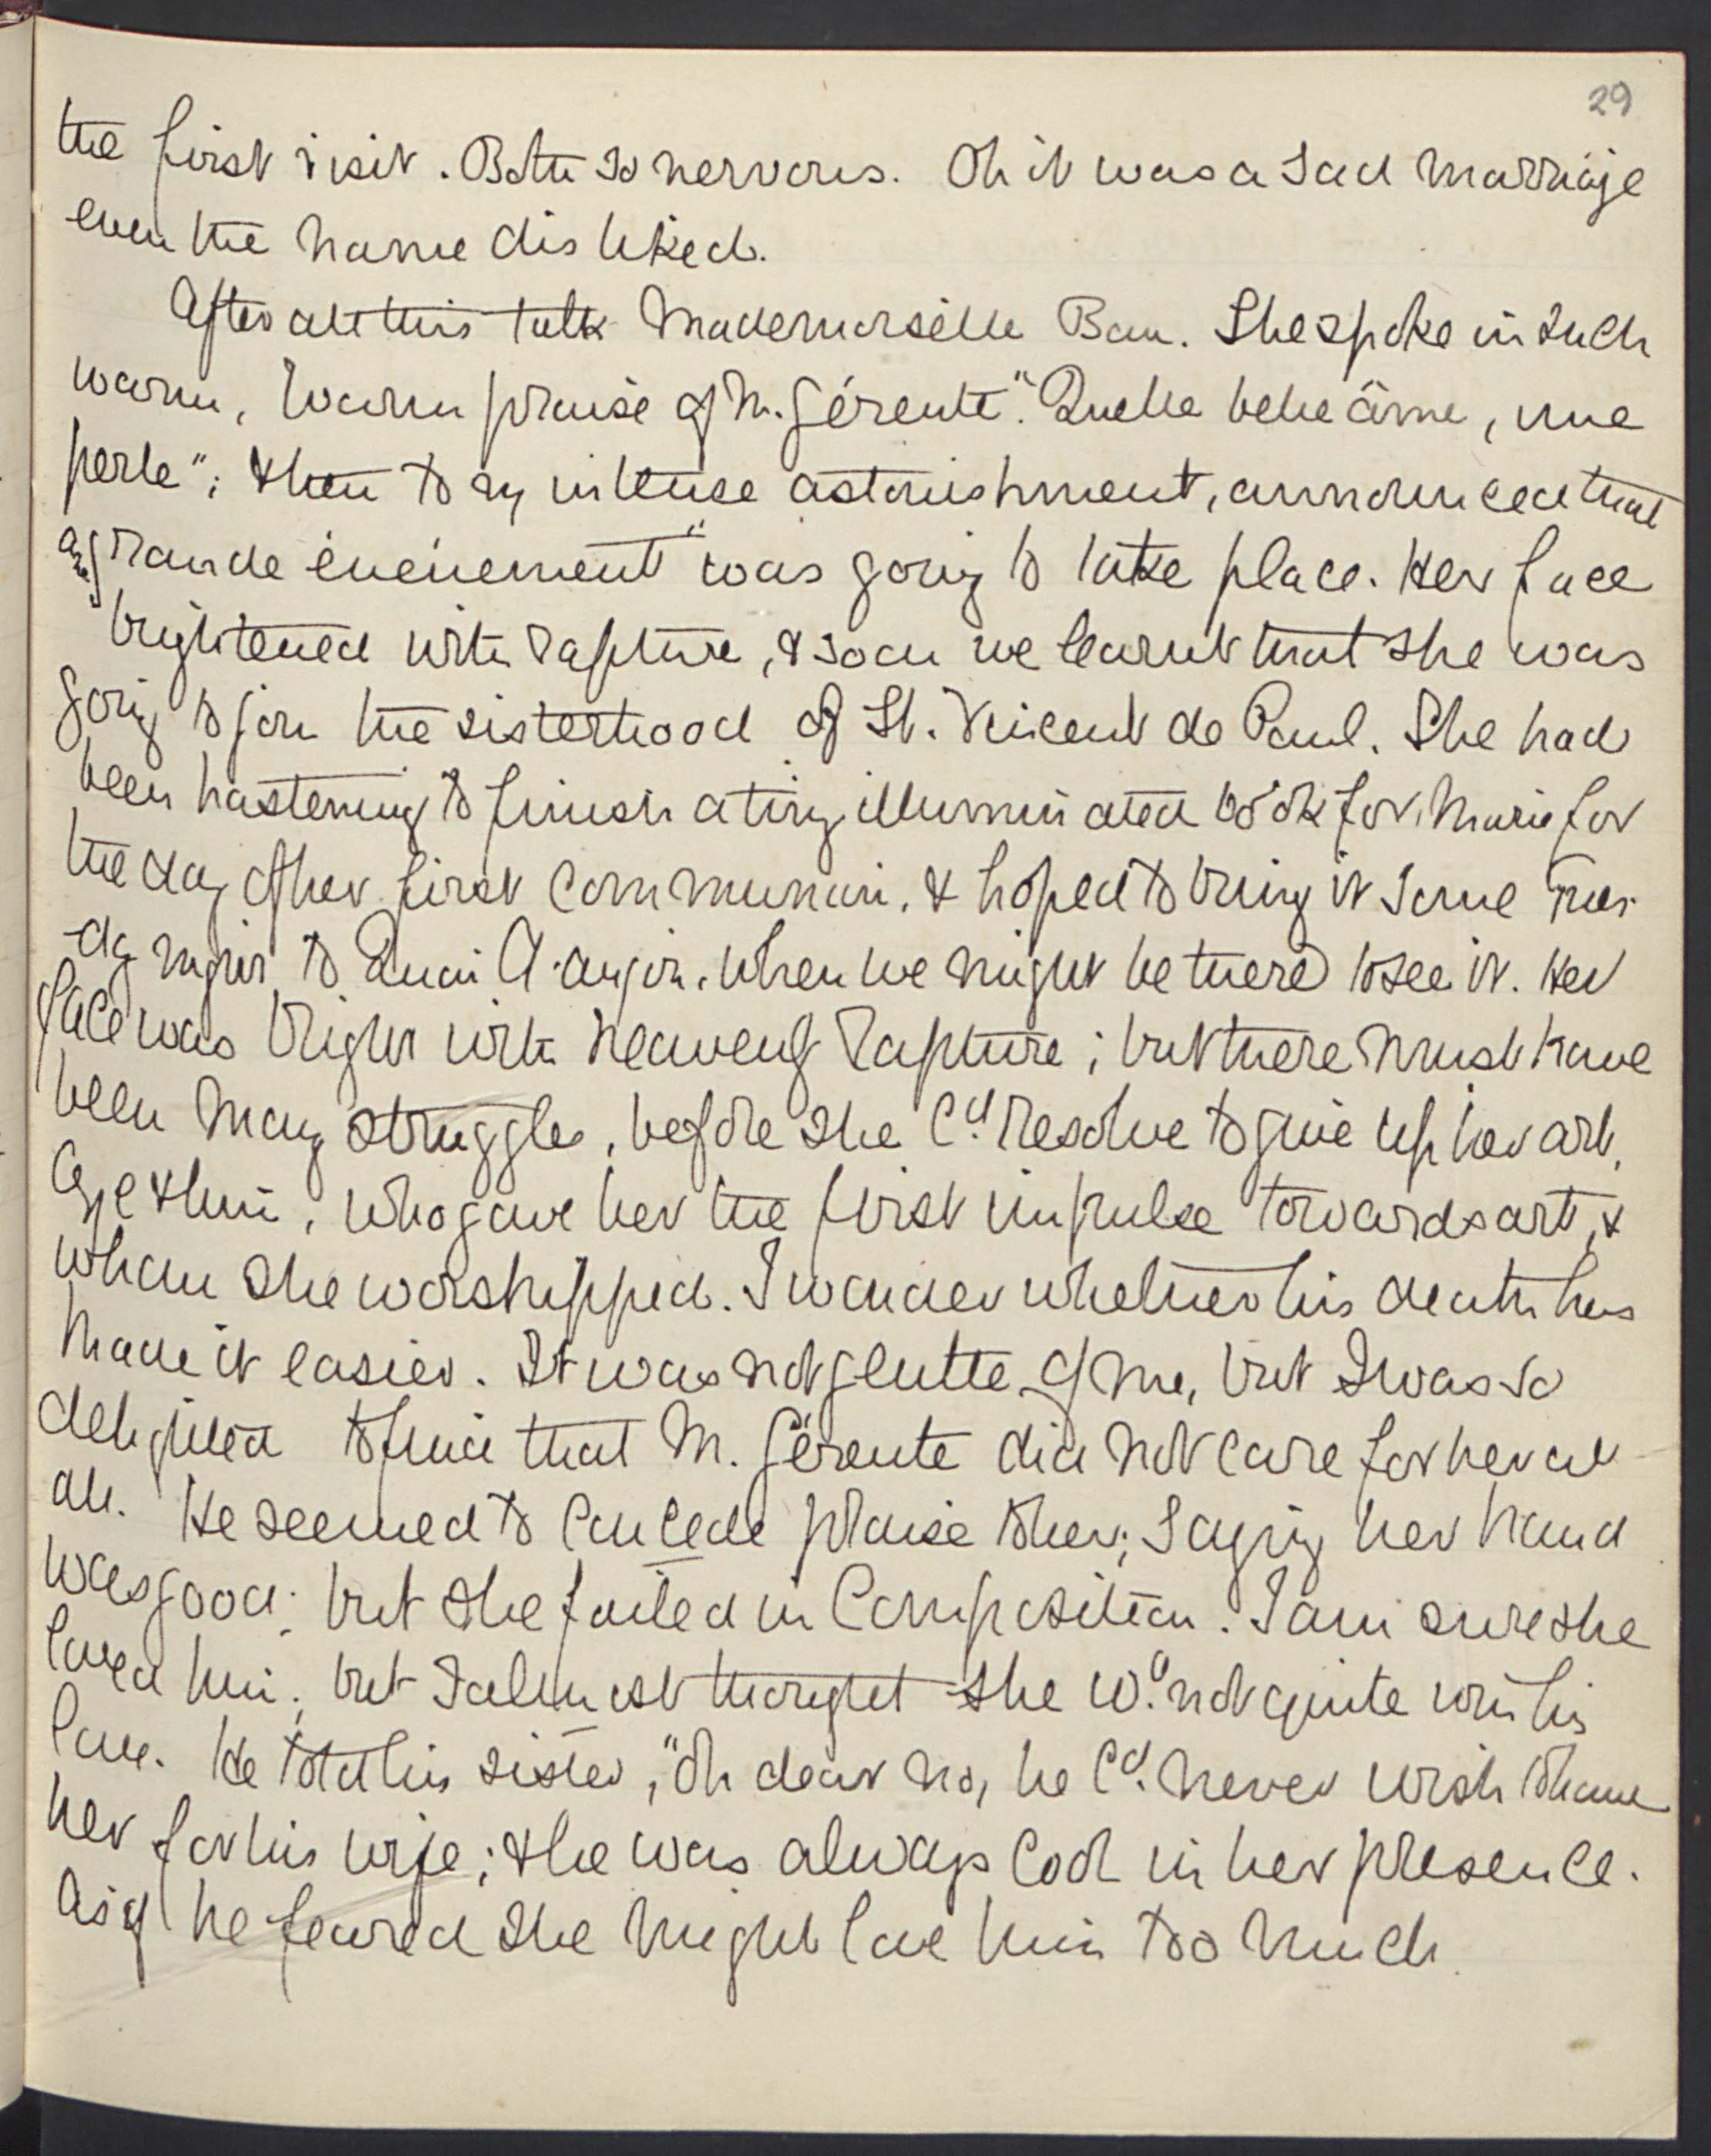 29
the first visit. Both so nervous. Oh it was a sad marriage
even the name disliked.
After all this talk Mademoiselle Bau. She spoke in such
warm, warm praise of M. Gérente". "Quelle belle âme, une
perle"; & then to my intense astonishment, announced that
a "grande évènement" was going to take place. Her face
brightened with rapture, & soon we learnt that she was
going to join the sisterhood of St. Vincent de Paul. She had
been hastening to finish a tiny illuminated book for Marie for
the day of her first communion, & hoped to bring it some Tues-
-day night to Quai d'Anjou, when we might be there to see it. Her
face was bright with heavenly rapture; but there must have
been many struggles, before she cd. resolve to give up her art,
& him, who gave her the first impulse towards art, &
whom she worshipped. I wonder whether his death has
made it easier. It was not gentle of me, but I was so
delighted to find that M. Gérente did not care for her at
all. He seemed to concede praise to her; saying her hand
was good; but she failed in Composition. I am sure she
loved him; but I almost thought she wd. not quite win his
love. He told his sister, "Oh dear no, he cd. never wish to have
her for his wife; & he was always cool in her presence.
As if he feared she might love him too much.